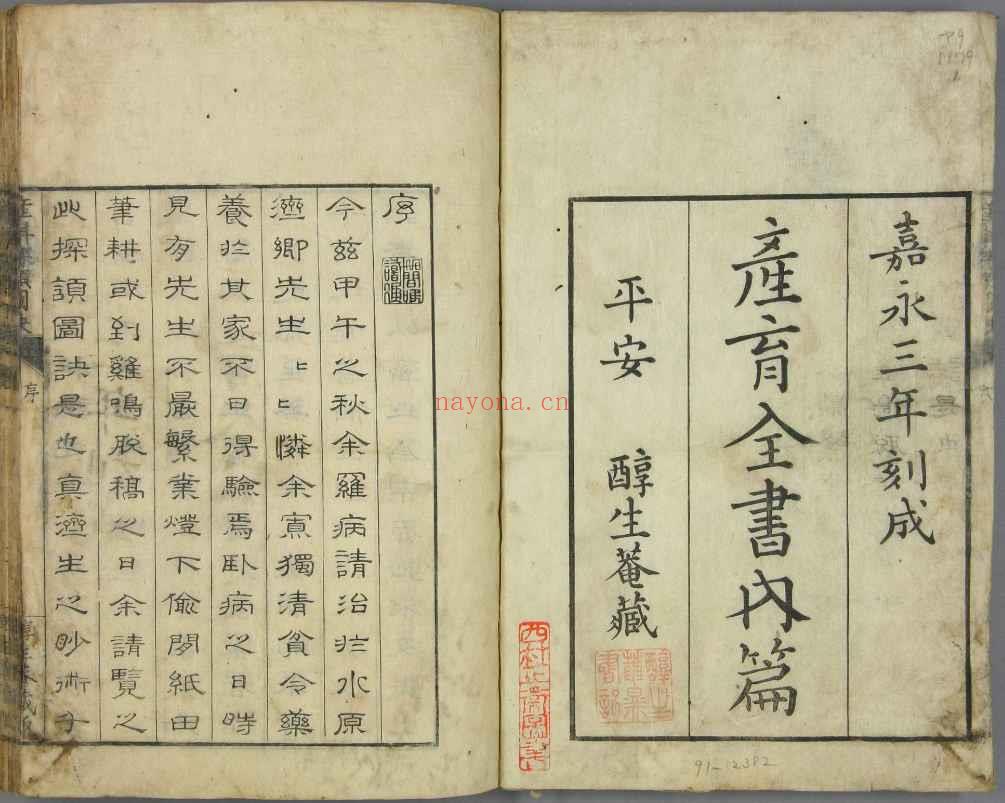 嘉永三年刻成
產育全書內篇
平安 醇生菴藏
91-12382
nayona.cn.com
序
今茲甲午之秋余羅病請治於水原
濟卿先生〻〻憐余寡獨清貧令藥
養於其家不日得驗焉臥病之日時
見有先生不厭繁業燈下偷閒紙田
筆耕或到雞鳴脫稿之日余請覽之
此探頷圖訣是也真濟生之妙術予
序